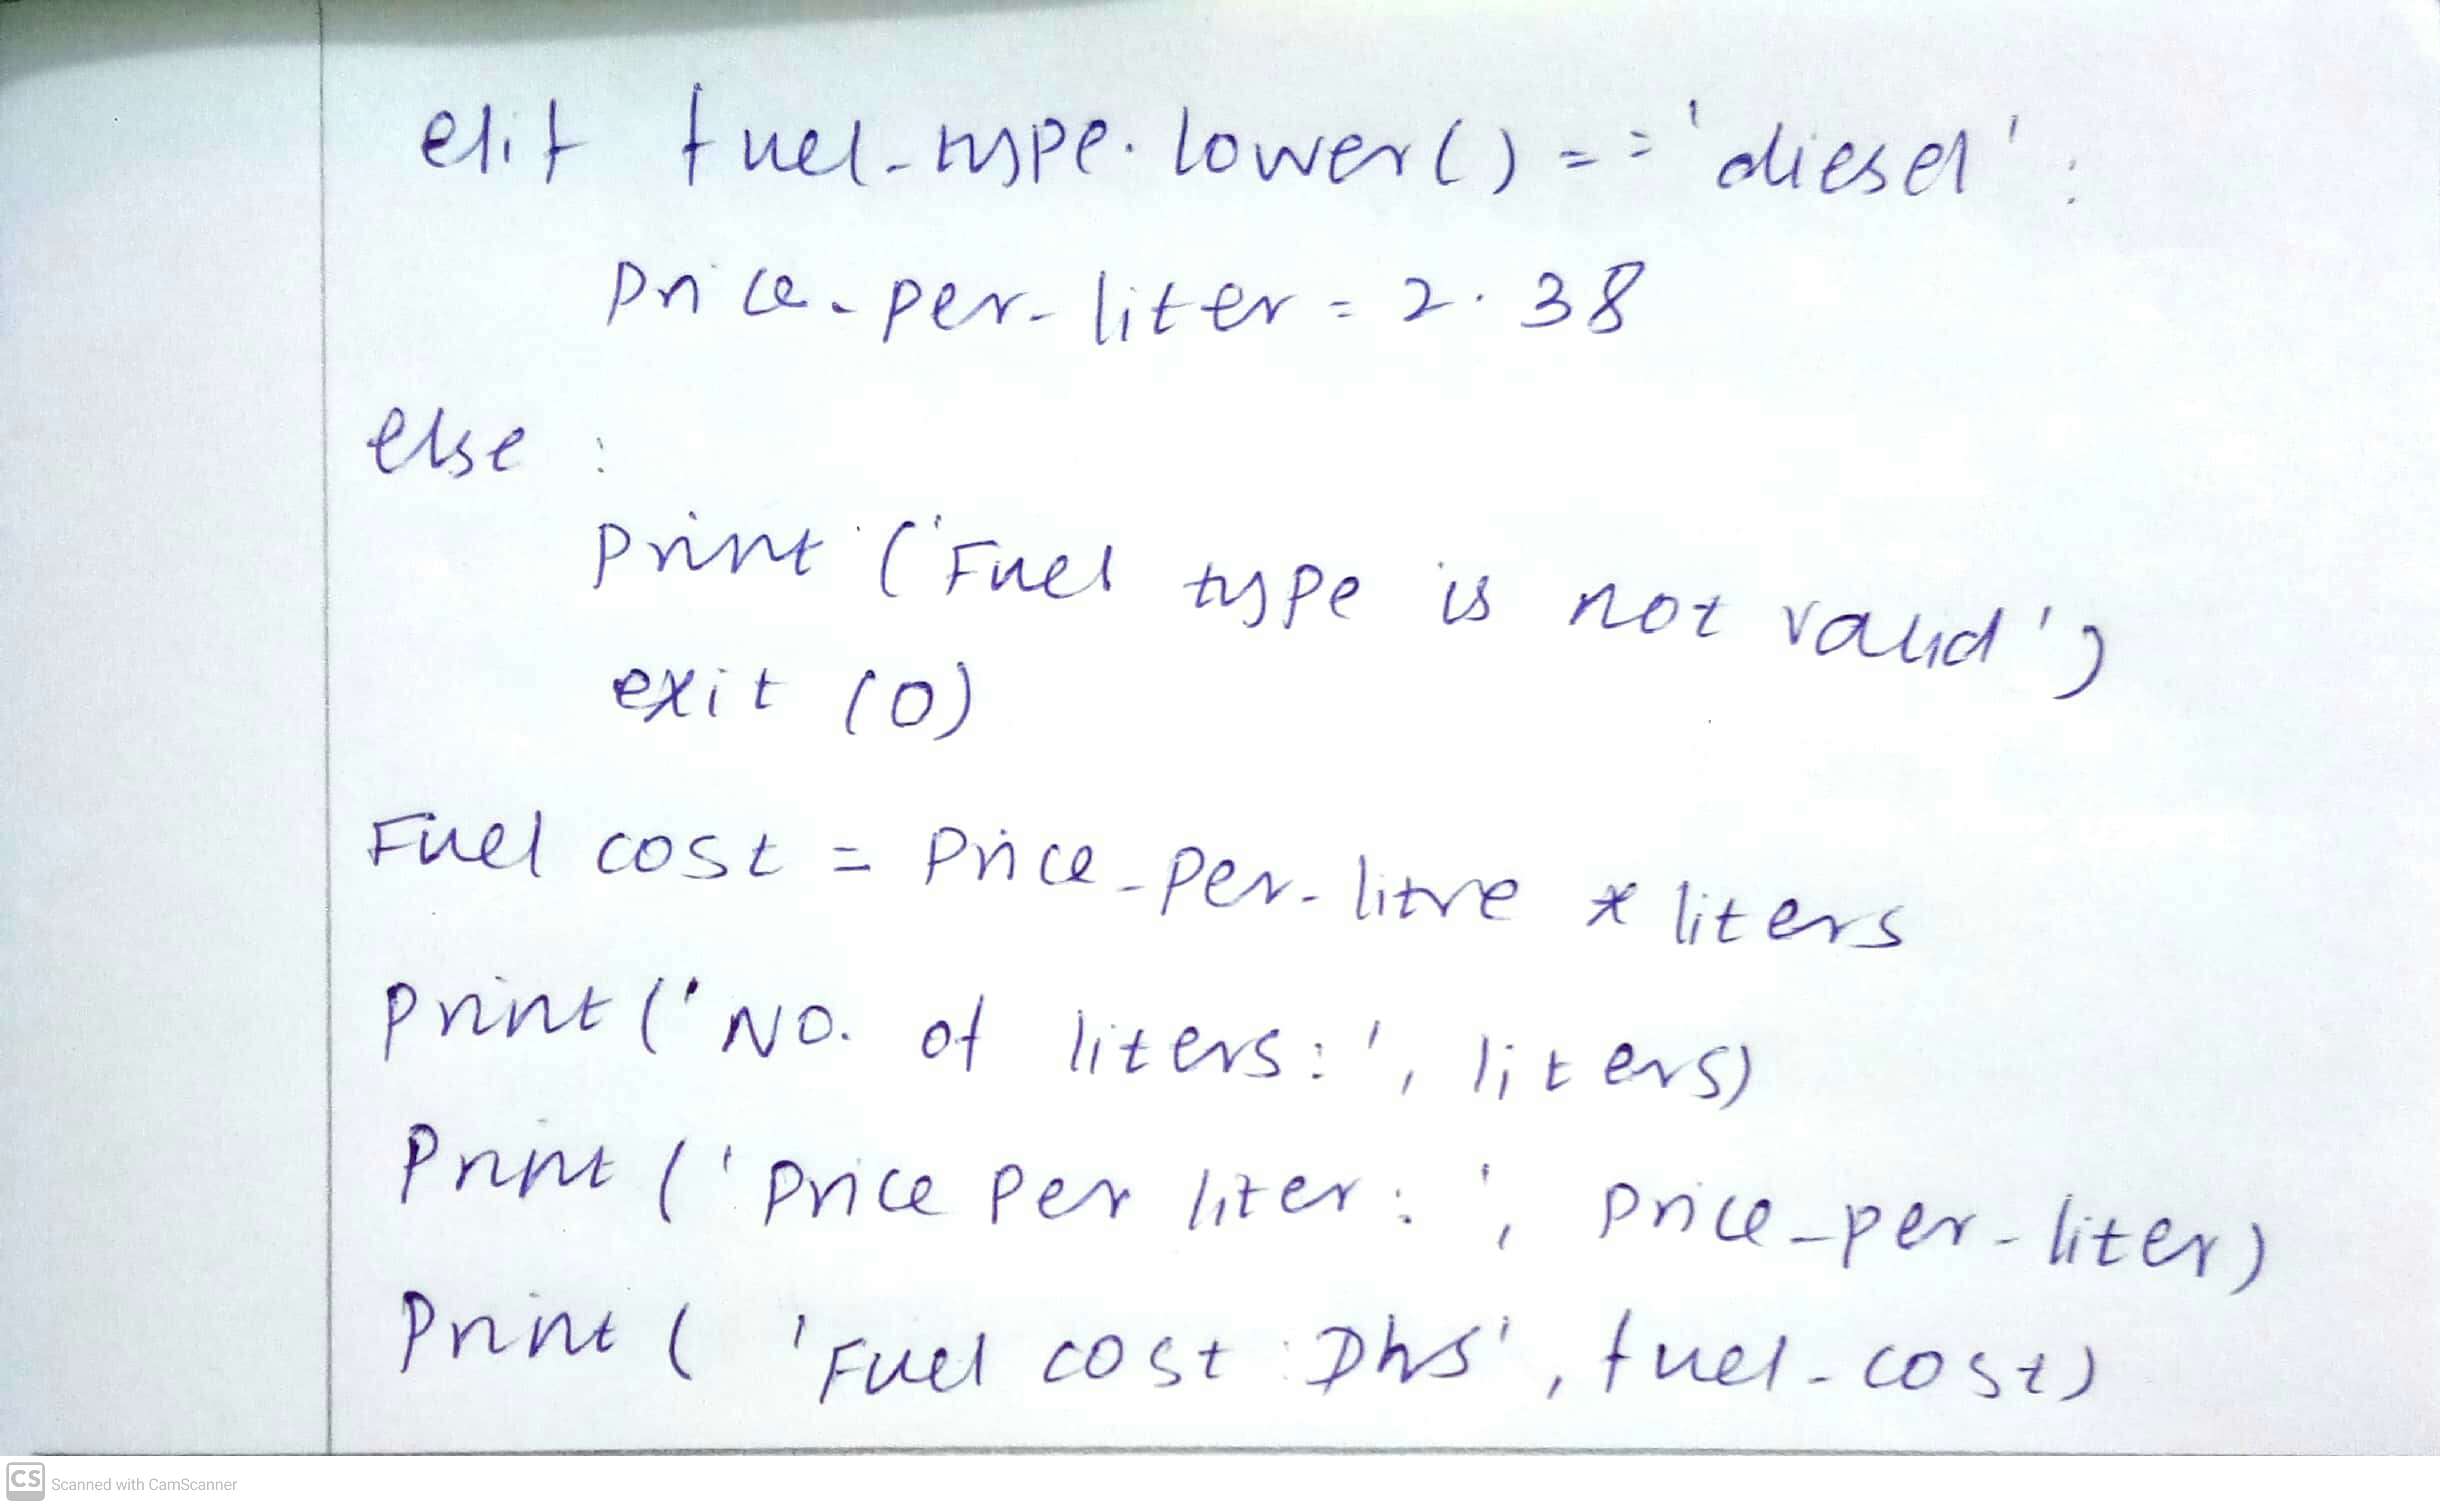 elif fuel_type.lower() == 'diesel':
price_per_liter = 2.38
else :
print ('Fuel type is not valid')
exit (0)
Fuel cost = Price_per_litre * liters
print ('NO. of liters:', liters)
Print ('Price Per liter:', Price_per_liter)
Print ( 'Fuel cost : Dhs', fuel_cost)
CS Scanned with CamScanner